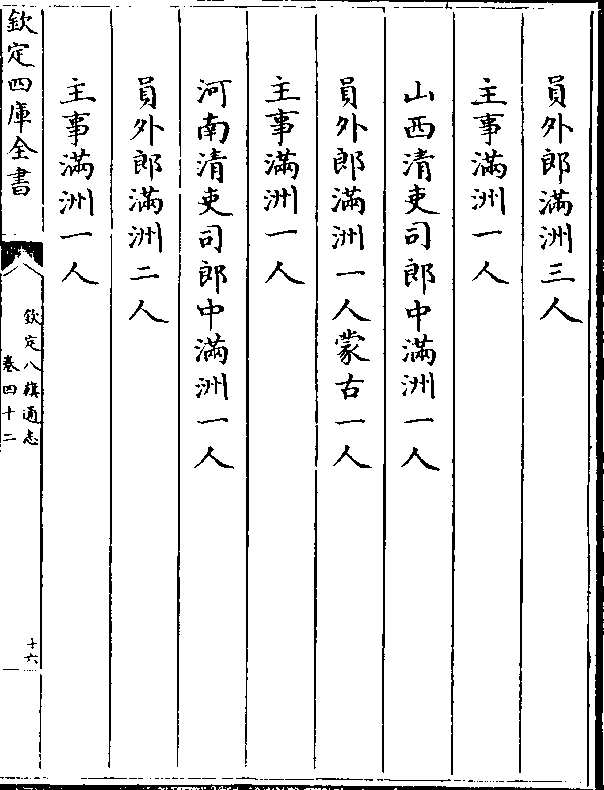 員外郎滿洲三人
主事滿洲一人
山西清吏司郎中滿洲一人
員外郎滿洲一人蒙古一人
主事滿洲一人
河南清吏司郎中滿洲一人
員外郎滿洲二人
主事滿洲一人
欽定四庫全書
欽定八旗通志
卷四十二
十六